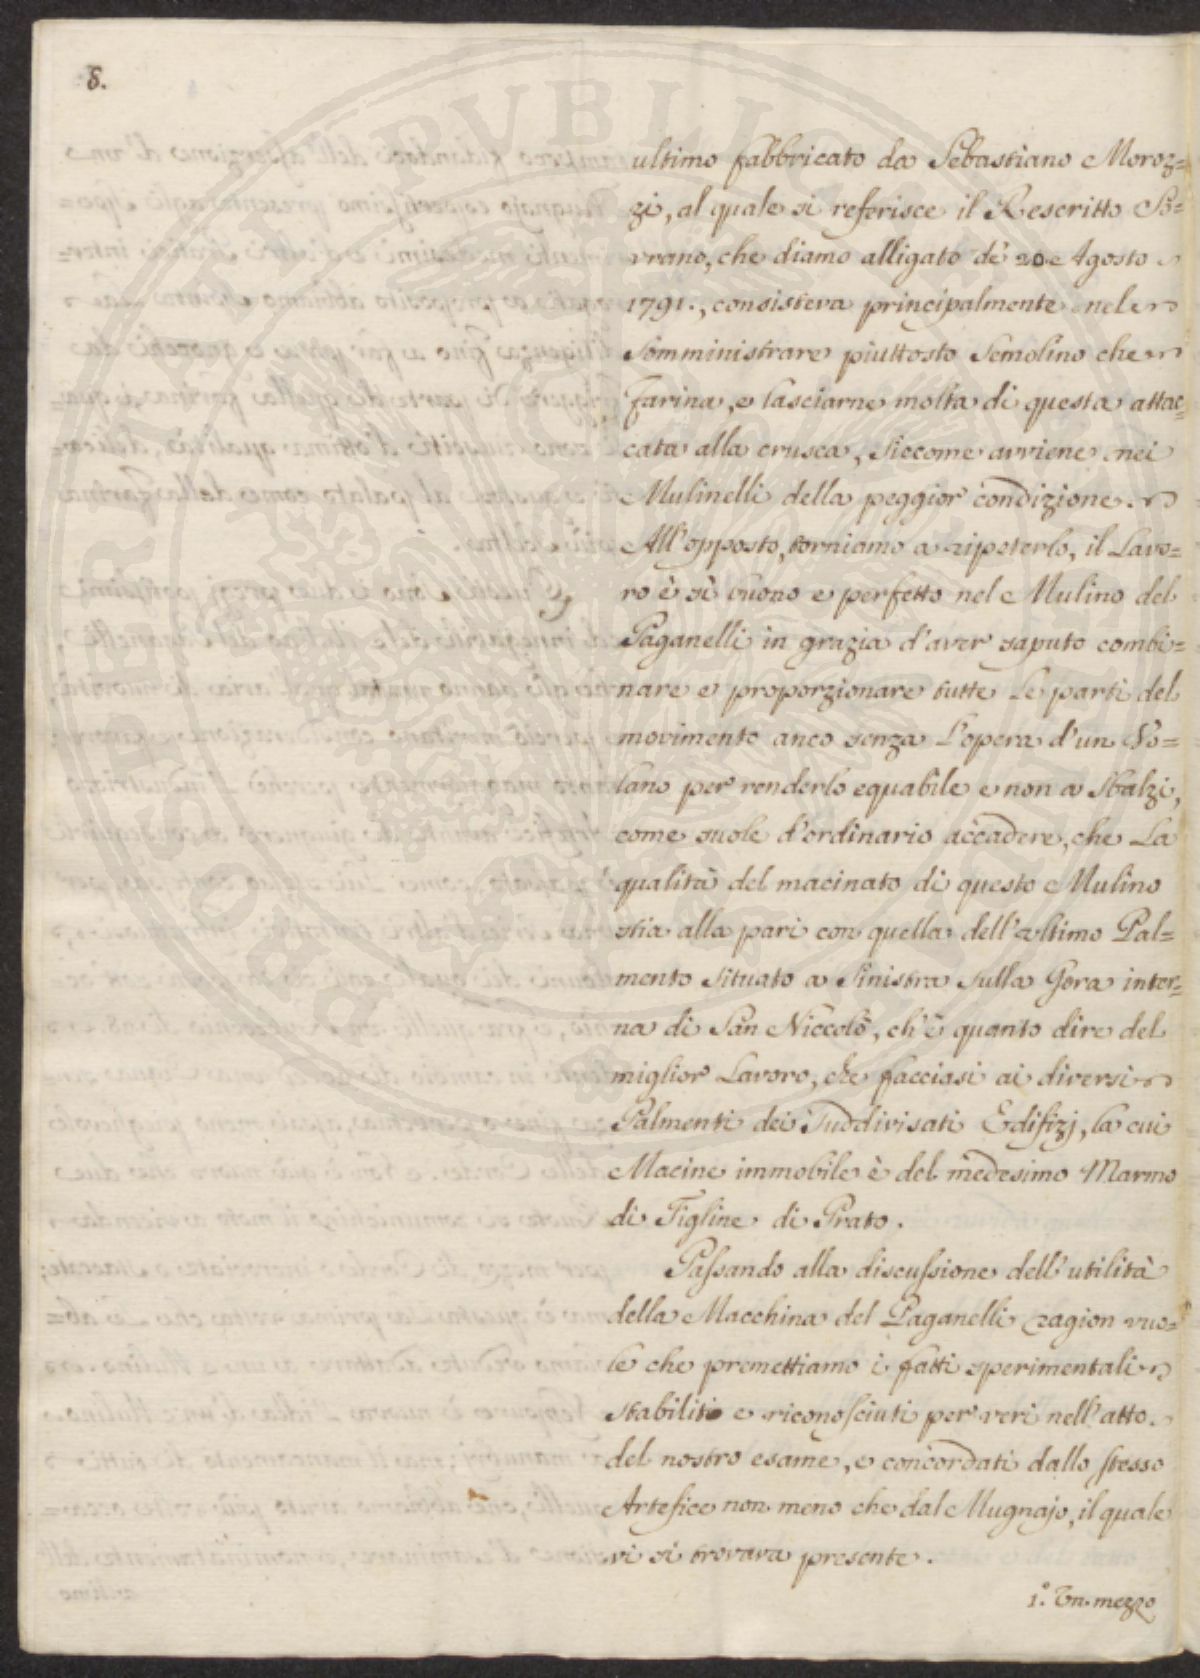 8.
ultimo fabbricato da Sebastiano Moroz=
zi, al quale si referisce il Rescritto So=
vrano, che diamo alligato de' 20 Agosto
1791., consisteva principalmente nel
somministrare piuttosto Semolino che
farina, e lasciarne molta di questa attac=
cata alla crusca, siccome avviene nei
Mulinelli della peggior condizione.
All'opposto, torniamo a ripeterlo, il Lavo=
ro è sì buono e perfetto nel Mulino del
Paganelli in grazia d'aver saputo combi=
nare e proporzionare tutte le parti del
movimento anco senza l'opera d'un Vo=
lano per renderlo equabile e non a sbalzi,
come suole d'ordinario accadere, che La
qualità del macinato di questo Mulino
stia alla pari con quella dell'ultimo Pal=
mento situato a Sinistra sulla Gora inter=
na di San Niccolò, ch'è quanto dire del
miglior Lavoro, che facciasi ai diversi
Palmenti dei suddivisati Edifizj, la cui
Macine immobile è del medesimo Marmo
di Figline di Prato.
Passando alla discussione dell'utilità
della Macchina del Paganelli ragion vuo=
le che premettiamo i fatti sperimentali
stabiliti e riconosciuti per veri nell'atto
del nostro esame, e concordati dallo stesso
Artefice non meno che dal Mugnajo, il quale
vi si trovava presente.
1.° Un mezzo
PROSPERI PVBLICAE